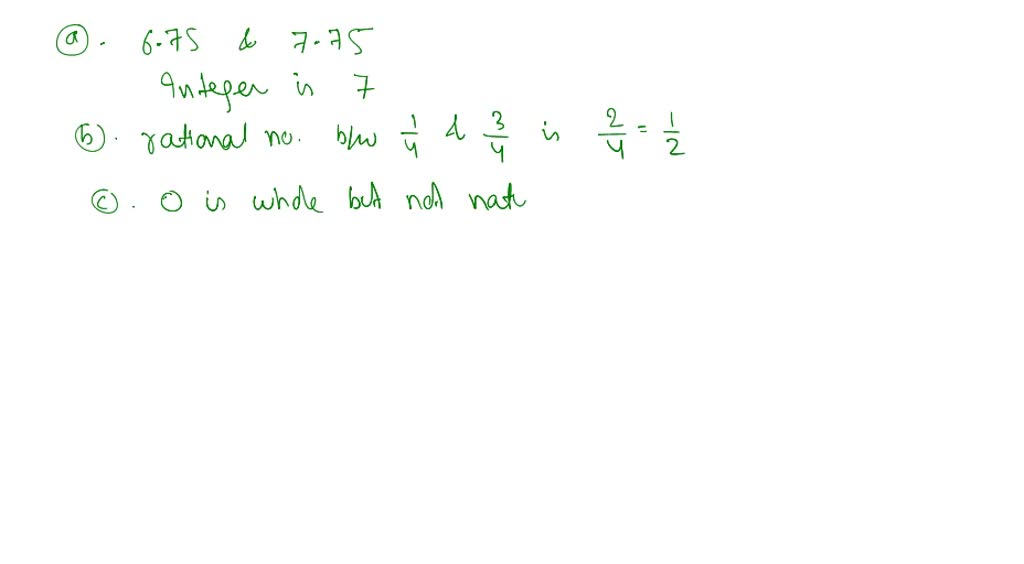 (a). 6.75 & 7.75
Integer is 7
(b). rational no. b/w 1/4 & 3/4 is 2/4 = 1/2
(c). 0 is whole but not natu